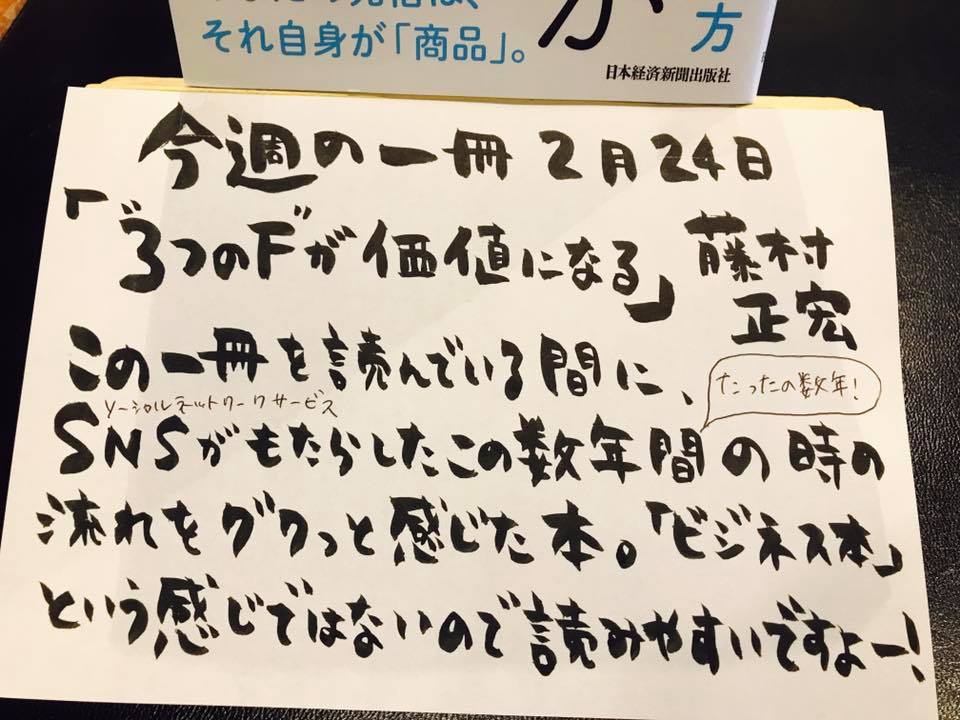 それ自身が「商品」。
が
方
日本経済新聞出版社
今週の一冊 2月24日
「"3つのF"が価値になる」
藤村
正宏
この一冊を読んでいる間に、
たったの数年!
ソーシャルネットワークサービス
SNSがもたらしたこの数年間の時の
流れをググっと感じた本。「ビジネス本」
という感じではないので読みやすいですよー!